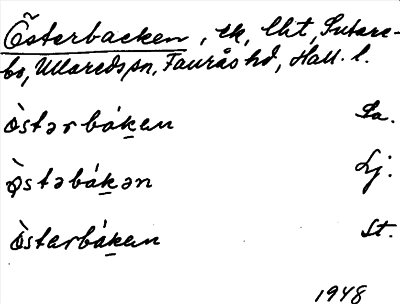 Österbacken, ek, lht, Sutare-
bo, Ullareds sn, Faurås hd, Hall. l.
òstərbák̲ən Sa.
òstəbák̲ən Lj.
òstarbák̲ən St.
1948